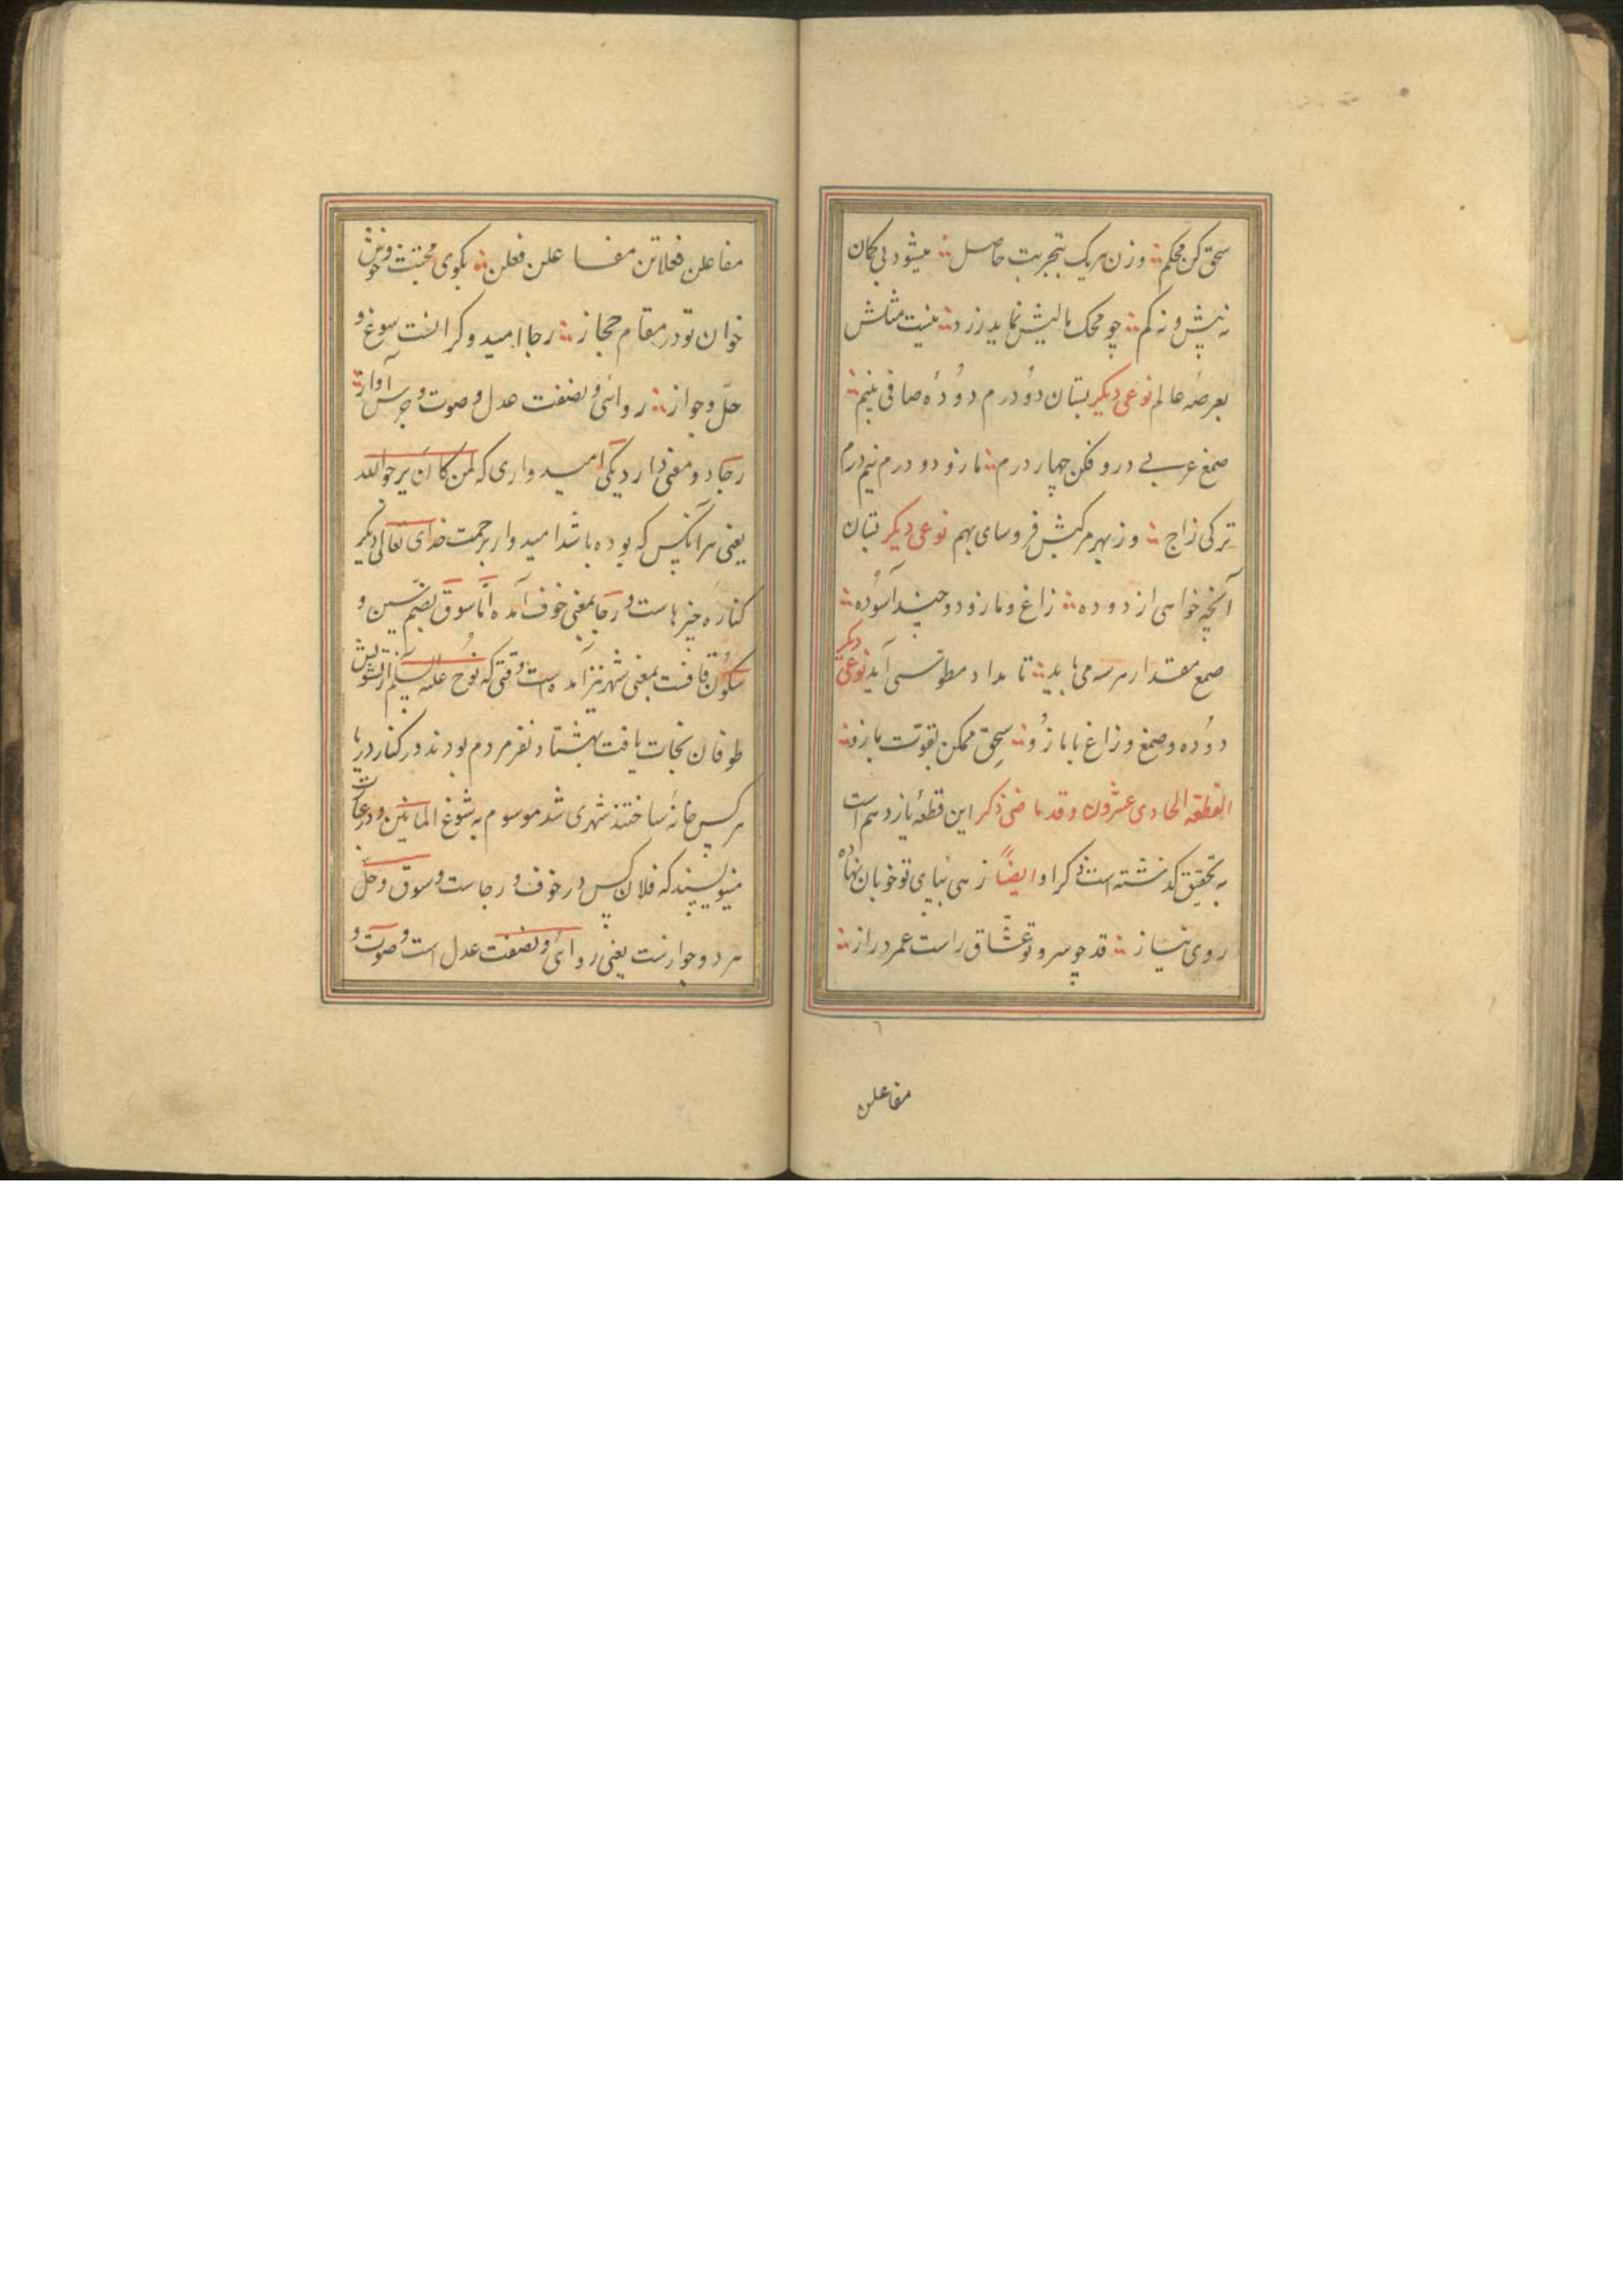 سحق کن محکم وزن هریک بتجربت حاصل میشود بی کمان
نه بیش و نه کم چو محک مالیش نماید زرد نیست مثلش
بعرصهٔ عالم نوعی دیکر بستان دو درم دوده صافی بنیم
صمغ عربی درو فکن چهار درم مازو دو درم نیم درم
ترکی زاج وز بهر مرکبش فروسای بهم نوعی دیکر بستان
آنچه خواهی از دوده زاغ و مازو دو چند آسوده
صمغ مقدار هر سه می باید تا مداد مطوسی آید نوعی دیکر
دوده و صمغ و زاغ با مازو سحق ممکن بقوت بازو
القطعه الحادی عشرون و قد ماضی ذکر این قطعهٔ یازدهم است
به تحقیق کذشته است ذکر او ایضاً زهی بپای تو خوبان نهاده
روی نیاز قد چو سرو تو عشاق راست عمر دراز
مفاعلن
مفاعلن فعلاتن مفاعلن فعلن بکوی مجتث و خوش
خوان تو در مقام حجاز رجا امید و کرانست سوغ و
حل و جواز روائی و نصفت عدل و صوت و جرس آواز
رجا دو معنی دارد یکی امیدواری که لمن کان یرجوالله
یعنی هر آنکس که بوده باشد امیدوار برحمت خدای تعالی دیکر
کناره چیزهاست و رجا بمعنی خوف آمده اما سوق بضم سین و
سکون قافست بمعنی شهر نیز آمده است وقتی که نوح علیه السلم از تشویش
طوفان نجات یافت بهشتاد نفر مردم بودند در کنار دریا
هرکس خانهٔ ساختند شهری شد موسوم به شوغ المانین و در
مینویسند که فلان کس در خوف و رجاست و سوق و حل
هر دو جوازست یعنی روائی و نصفت عدل است و صوت و